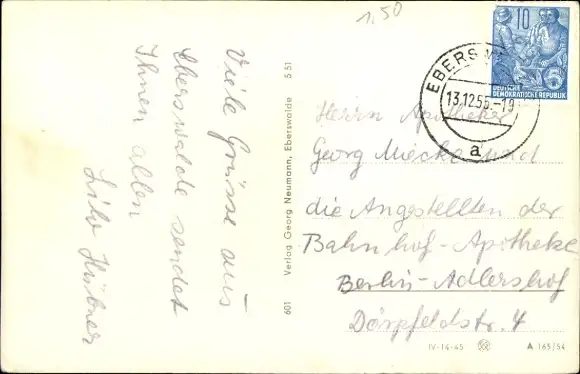 1,50
Viele Grüsse aus
Eberswalde sendet
Ihnen allen
Hübner
601 Verlag Georg Neumann, Eberswalde 5 51
10
DEUTSCHE
DEMOKRATISCHE REPUBLIK
5
EBERSW
13.12.55.-19
a
Herrn Apotheker
Georg
die Angestellten der
Bahnhof-Apotheke
Berlin-Adlershof
Dörpfeldstr. 4
IV-14-45 A 165/54